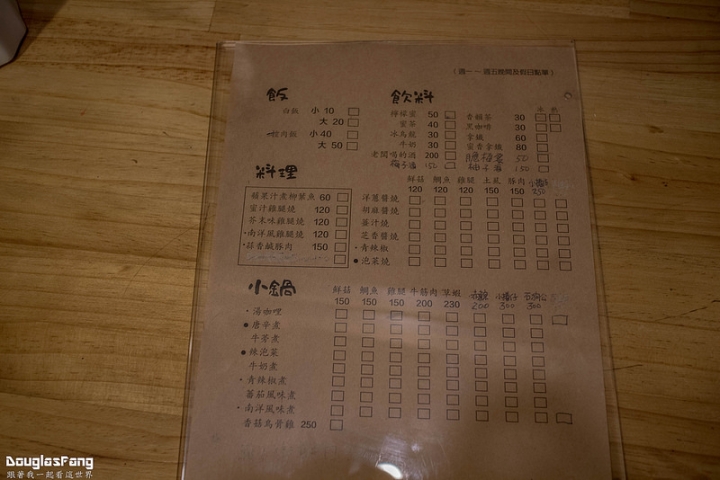 （週一～週五晚間及假日點單）
飯
白飯 小 10
大 20
小 40
大 50
飲料
檸檬蜜 50
蜜茶 40
冰烏龍 30
牛奶 30
老闆喝的酒 200
梅子酒 150
冰 熱
30
黑咖啡 30
拿鐵 60
蜜香拿鐵 80
50
柚子 50
料理
蘋果汁煮柳葉魚 60
蜜汁雞腿燒 120
芥末味雞腿燒 120
·南洋風雞腿燒 120
·蒜香鹹豚肉 150
鮮菇 鯛魚 雞腿 土虱 豚肉
120 120 120 150 150 250
洋蔥醬燒
胡麻醬燒
薑汁燒
芝香醬燒
·青辣椒
●泡菜燒
小鍋
鮮菇 鯛魚 雞腿 牛筋肉 草蝦
150 150 150 200 230 200 300 300
·湯咖哩
●唐辛煮
牛蒡煮
●辣泡菜
牛奶煮
·青辣椒煮
蕃茄風味煮
·南洋風味煮
香菇烏骨雞 250
DouglasFang
跟著我一起看這世界